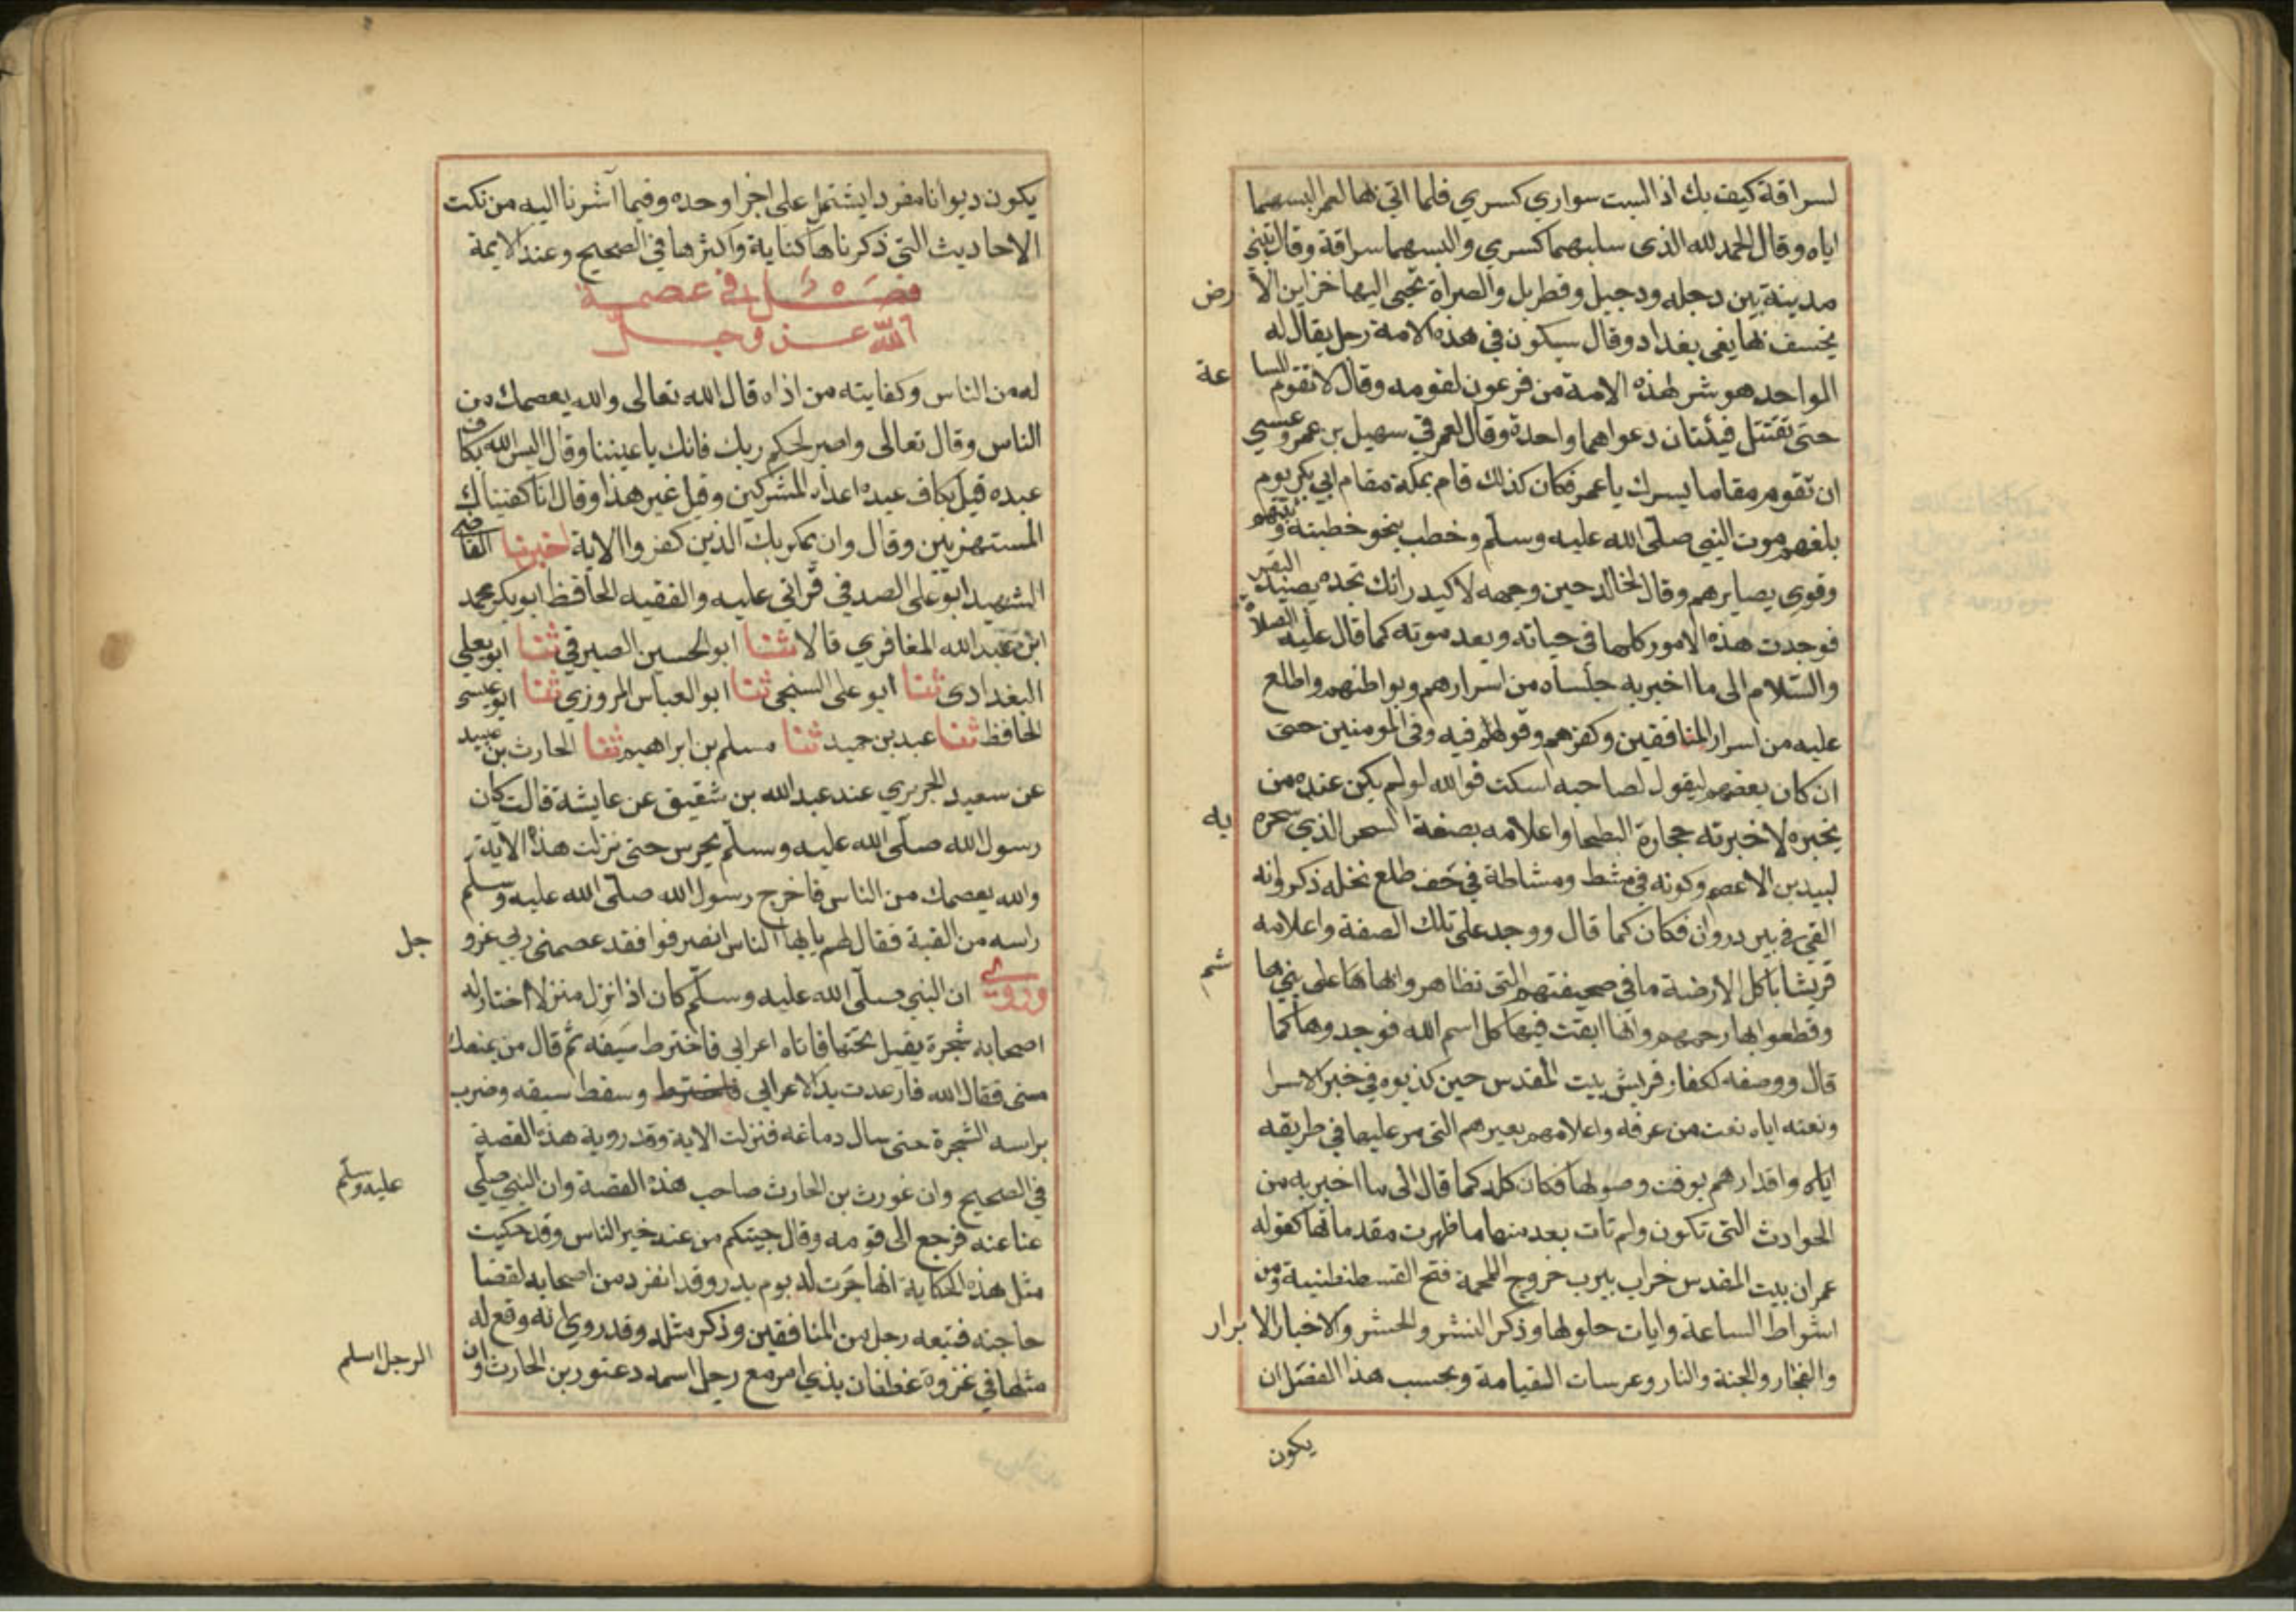 لسراقة كيف بك اذا لبست سواري كسري فلما اتي بها لعمر البسهما
اياه وقال الحمد لله الذى سلبهما كسري والبسهما سراقة وقال تبنى
مدينة بين دجله ودجيل وقطربل والصراة تجبى اليها خزاين الارض
يخسف بها يعنى بغداد وقال سيكون في هذه الامة رجل يقال له
الواحد هو شر لهذه الامة من فرعون لقومه وقال لا تقوم الساعة
حتى تقتتل فيئتان دعواهما واحدة وقال لعمر في سهيل بن عمرو عسي
ان تقوم مقاما يسرك يا عمر فكان كذلك قام بمكة مقام ابي بكر يوم
بلغهم موت النبي صلى الله عليه وسلم وخطب بنحو خطبته وثبتهم
وقوي بصايرهم وقال لخالد حين وجهه لاكيدر انك تجده يصيد البقر
فوجدت هذه الامور كلها في حياته وبعد موته كما قال عليه الصلاة
والسلام الى ما اخبر به جلساه من اسرارهم وبواطنهم واطلع
عليه من اسرار المنافقين وكفرهم وقولهم فيه وفى المومنين حتى
ان كان بعضهم ليقول لصاحبه اسكت فوالله لو لم يكن عنده من
يخبره لاخبرته حجارة البطحا واعلامه بصفة السحر الذي سحره به
لبيد بن الاعصم وكونه في مشط ومشاطة في جف طلع نخله ذكر وانه
القي في بير دروان فكان كما قال ووجد على تلك الصفة واعلامه
قريشا باكل الارضة ما في صحيفتهم التى تظاهروا بها على بني هاشم
وقطعوا بها رحمهم وانها ابقت فيها كل اسم الله فوجدوها كما
قال ووصفه لكفار قريش بيت المقدس حين كذبوه في خبر الاسرا
ونعته اياه نعت من عرفه واعلامهم بعيرهم التى مر عليها في طريقه
اياه واقدارهم بوقت وصولها فكان كله كما قال الى ما اخبر به من
الحوادث التى تكون ولم تات بعد منها ما ظهرت مقدماتها كقوله
عمران بيت المقدس خراب يثرب خروج الملحمة فتح القسطنطينية ومن
اشراط الساعة وايات حلولها وذكر النشر والحشر والاخبار الابرار
والفجار والجنة والنار وعرسات القيامة وبحسب هذا الفصل ان
يكون
يكون ديوانا مفردا يشتمل على اجزا وحده وفيما اشرنا اليه من نكت
الاحاديث التى ذكرناها كناية واكثرها في الصحيح وعند الايمة
فصل في عصمة
الله عز وجل
له من الناس وكفايته من اذاه قال الله تعالى والله يعصمك من
الناس وقال تعالى واصبر لحكم ربك فانك باعيننا وقال اليس الله بكاف
عبده قيل بكاف عبده اعداه المشركين وقيل غير هذا وقال انا كفيناك
المستهزيين وقال وان يمكر بك الذين كفروا الاية اخبرنا القاضي
الشهيد ابو على الصدفي قراتي عليه والفقيه الحافظ ابو بكر محمد
ابن عبد الله المغافري قالا ثنا ابو الحسين الصيرفي ثنا ابو يعلي
البغدادى ثنا ابو على السنجي ثنا ابو العباس المروزي ثنا ابو عيسى
الحافظ ثنا عبد بن حميد ثنا مسلم بن ابراهيم ثنا الحارث بن عبيد
عن سعيد الجريري عند عبد الله بن شقيق عن عايشة قالت كان
رسول الله صلى الله عليه وسلم يحرس حتى نزلت هذه الاية
والله يعصمك من الناس فاخرج رسول الله صلى الله عليه وسلم
راسه من القبة فقال لهم يا ايها الناس انصرفوا فقد عصمنى ربي عز وجل
وروي ان النبي صلى الله عليه وسلم كان اذا نزل منزلا اختار له
اصحابه شجرة يقيل تحتها فاتاه اعرابي فاخترط سيفه ثم قال من يمنعك
منى فقال الله فارعدت يد الاعرابي فاخترط وسقط سيفه وضرب
براسه الشجرة حتى سال دماغه فنزلت الاية وقد روية هذه القصة
في الصحيح وان غورث بن الحارث صاحب هذه القصة وان النبي صلى عليه وسلم
عنا عنه فرجع الى قومه وقال جيتكم من عند خير الناس وقد حكيت
مثل هذه الحكاية انها جرت له يوم بدر وقد انفرد من اصحابه لقضا
حاجته فتبعه رجل من المنافقين وذكر مثله وقد روي انه وقع له
مثلها في غزوة غطفان بذي امر مع رجل اسمه دعثور بن الحارث وان الرجل اسلم